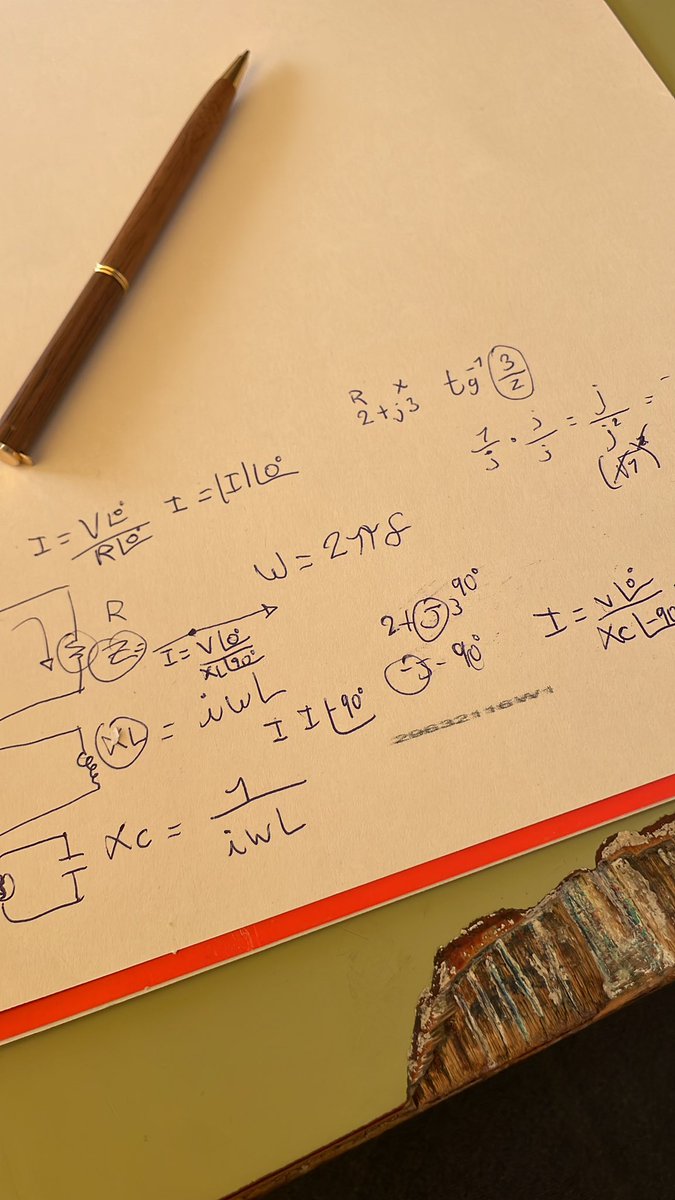 R x
2+j3
tg⁻¹ 3/2
1/j · j/j = j/j² = -
(√1)²
I = V∠0°/R∠0°
I = |I|∠0°
W = 2πf
R
Z
I = V∠0°/XL∠90°
2+J3 90°
-J-90°
I = V∠0°/XC∠-90°
XL = iWL
I I∠-90°
XC = 1/iWL